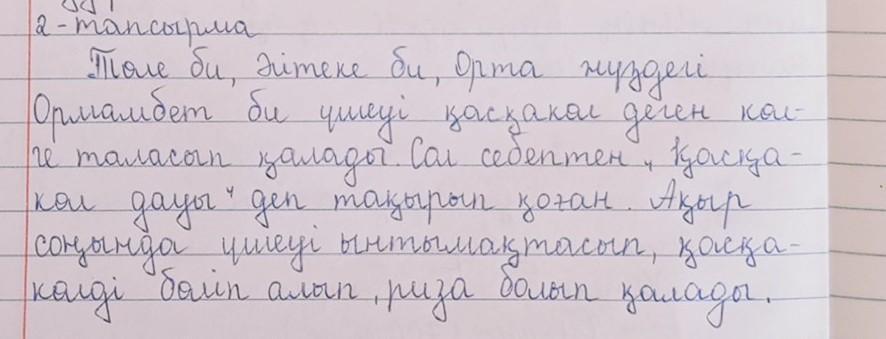 2-тапсырма
Төле би, Әйтеке би, Орта жүздегі
Орманбет би үшеуі қасқакөл деген көл-
ге таласып қалады. Сол себептен „Қасқа-
көл дауы" деп тақырып қоған. Ақыр
соңында үшеуі ынтымақтасып, қасқа-
көлді бөліп алып, риза болып қалады.